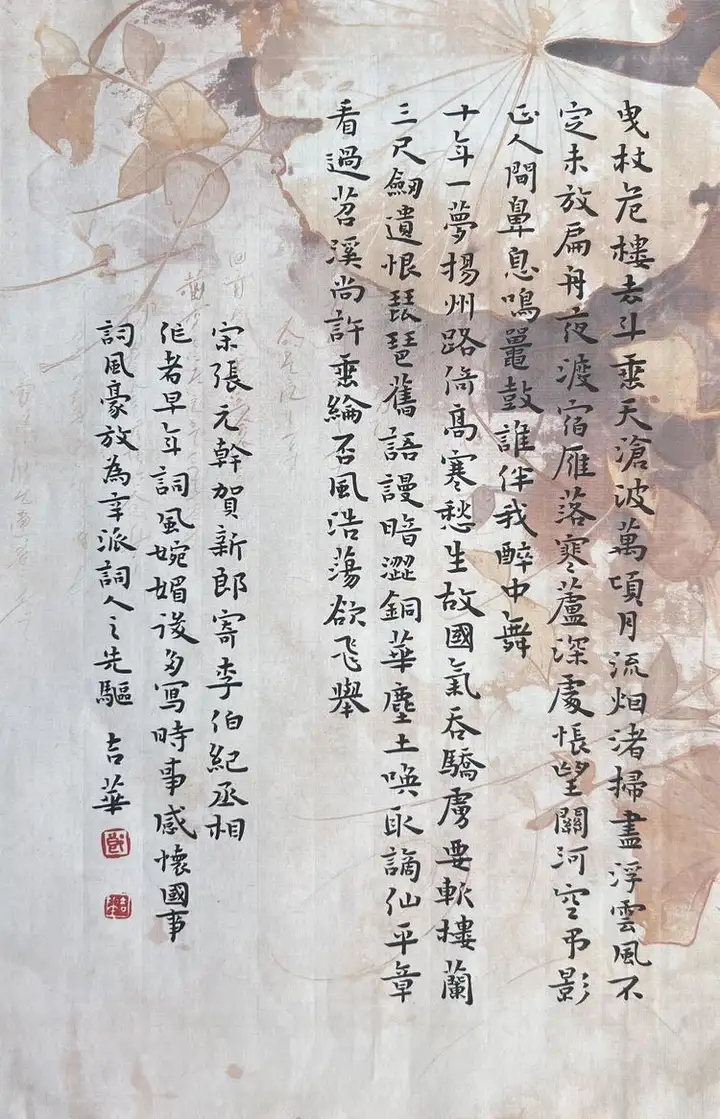 曳杖危樓去斗垂天滄波萬頃月流烟渚掃盡浮雲風不
定未放扁舟夜渡宿雁落寒蘆深處悵望關河空弔影
正人間鼻息鳴鼉鼓誰伴我醉中舞
十年一夢揚州路倚高寒愁生故國氣吞驕虜要斬樓蘭
三尺劒遺恨琵琶舊語謾暗澀銅華塵土喚取謫仙平章
看過苕溪尚許垂綸否風浩蕩欲飛舉
宋張元幹賀新郎寄李伯紀丞相
作者早年詞風婉媚後多寫時事感懷國事
詞風豪放為辛派詞人之先驅 吉華